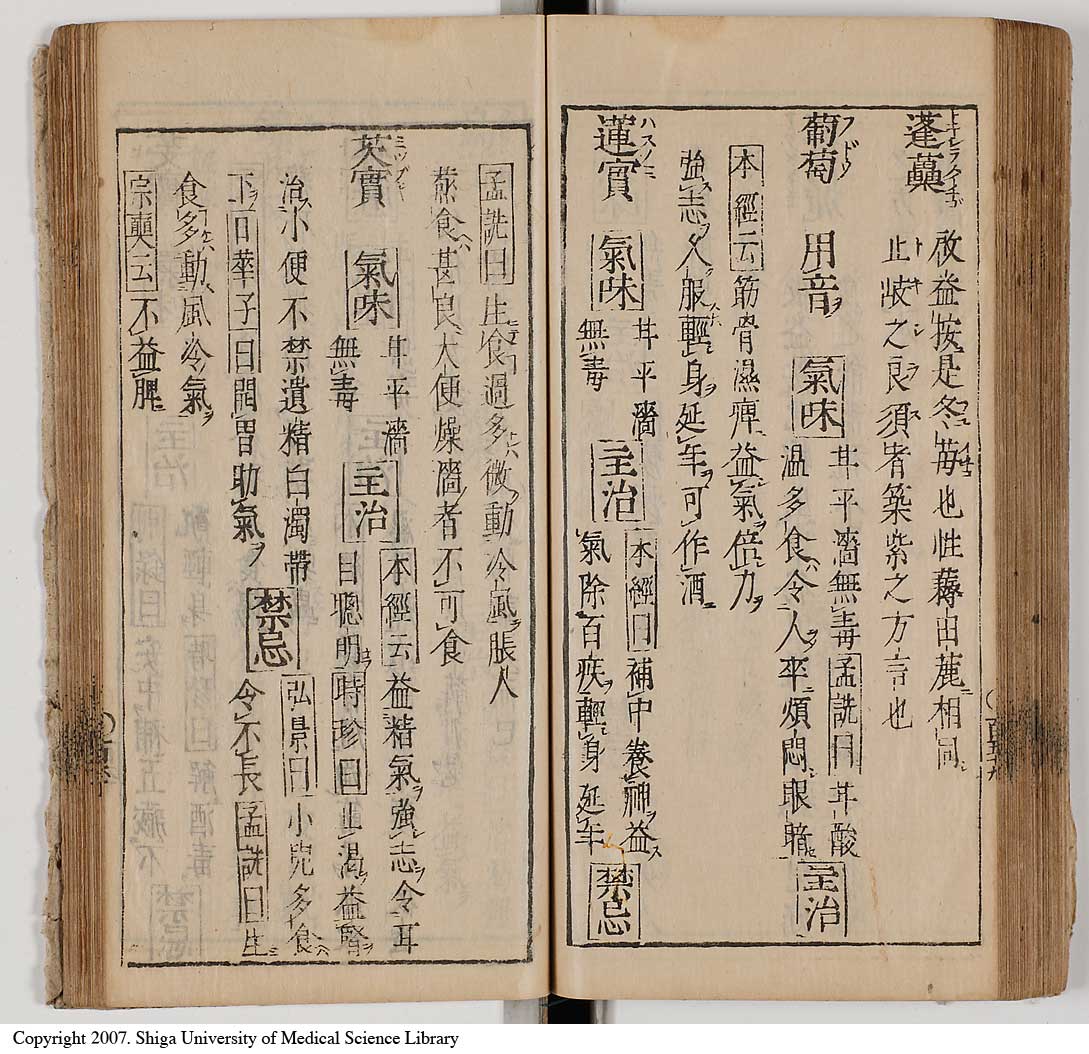 蓬虆 啟益按是冬苺也性蓐出麓相同
止岐之良須者築紫之方言也
葡萄 フドウ 用音ヲ 氣味 甘平濇無毒孟詵曰甘酸
温多食令人卒煩悶眼暗 主治
本經云筋骨濕痺益氣倍力
強志久服輕身延年可作酒
蓮實 ハスノミ 氣味 甘平濇
無毒 主治 本經曰補中養神益
氣除百疾輕身延年 禁忌
孟詵曰生食過多微動冷風脹人
蒸食甚良大便燥濇者不可食
芡實 氣味 甘平濇
無毒 主治 本經云益精氣強志令耳
目聰明時珍曰止渴益腎
治小便不禁遺精白濁帶
下日華子曰開胃助氣 禁忌 弘景曰小兒多食
令不長孟詵曰生
食多動風冷氣
宗奭云不益脾
Copyright 2007. Shiga University of Medical Science Library